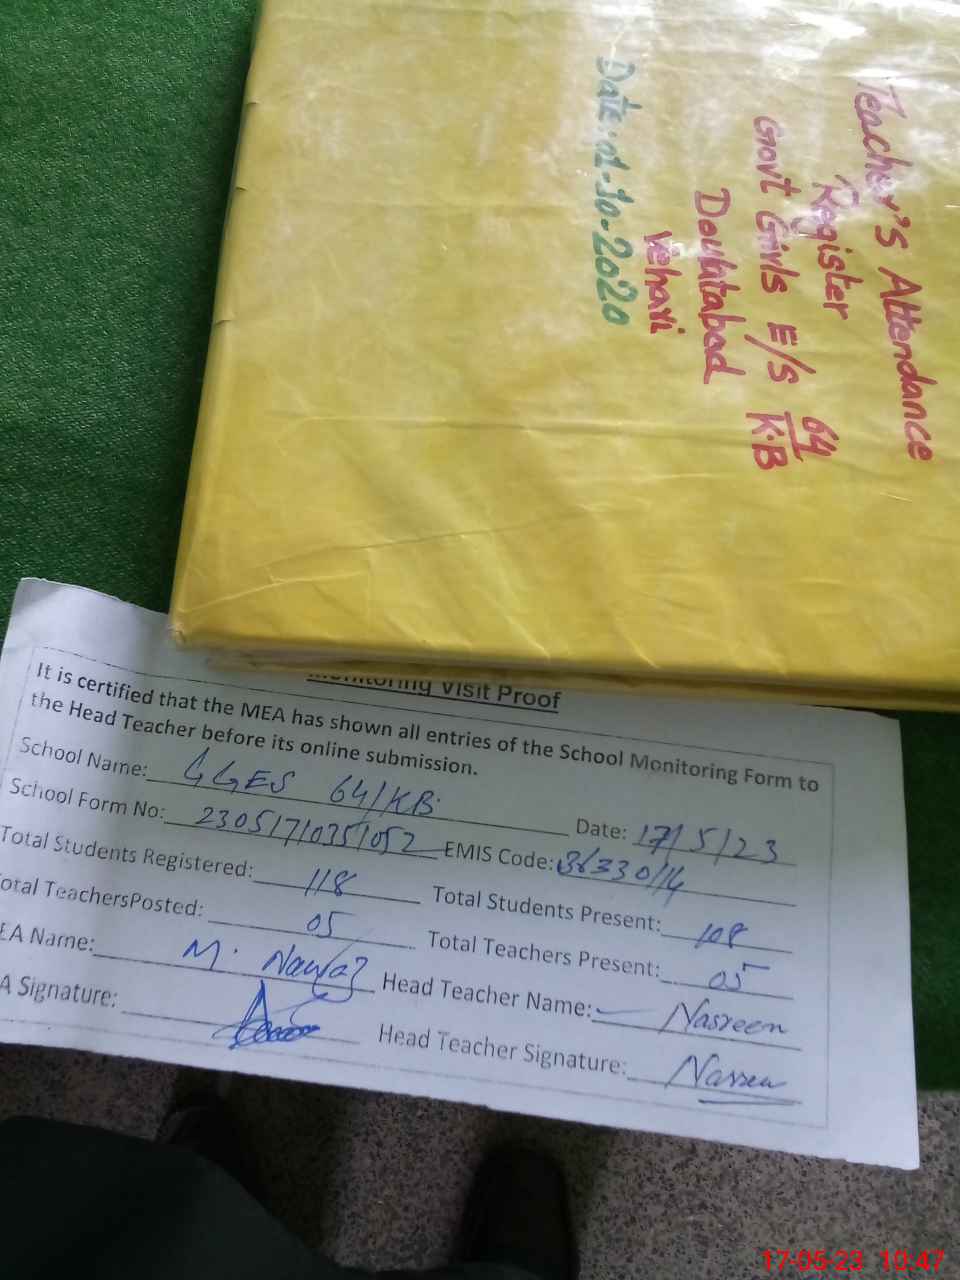 Teacher's Attendance
Register
Govt Girls E/S 64/K.B
Doulatabad
Vehari
Date: 01-10-2020
Monitoring Visit Proof
It is certified that the MEA has shown all entries of the School Monitoring Form to
the Head Teacher before its online submission.
School Name: GGES 64/KB Date: 17/5/23
School Form No: 23051710351052 EMIS Code: 36330114
Total Students Registered: 118 Total Students Present: 108
Total TeachersPosted: 05 Total Teachers Present: 05
EA Name: M. Nawaz Head Teacher Name: Nasreen
A Signature: Head Teacher Signature: Nasreen
17-05-23 10:47